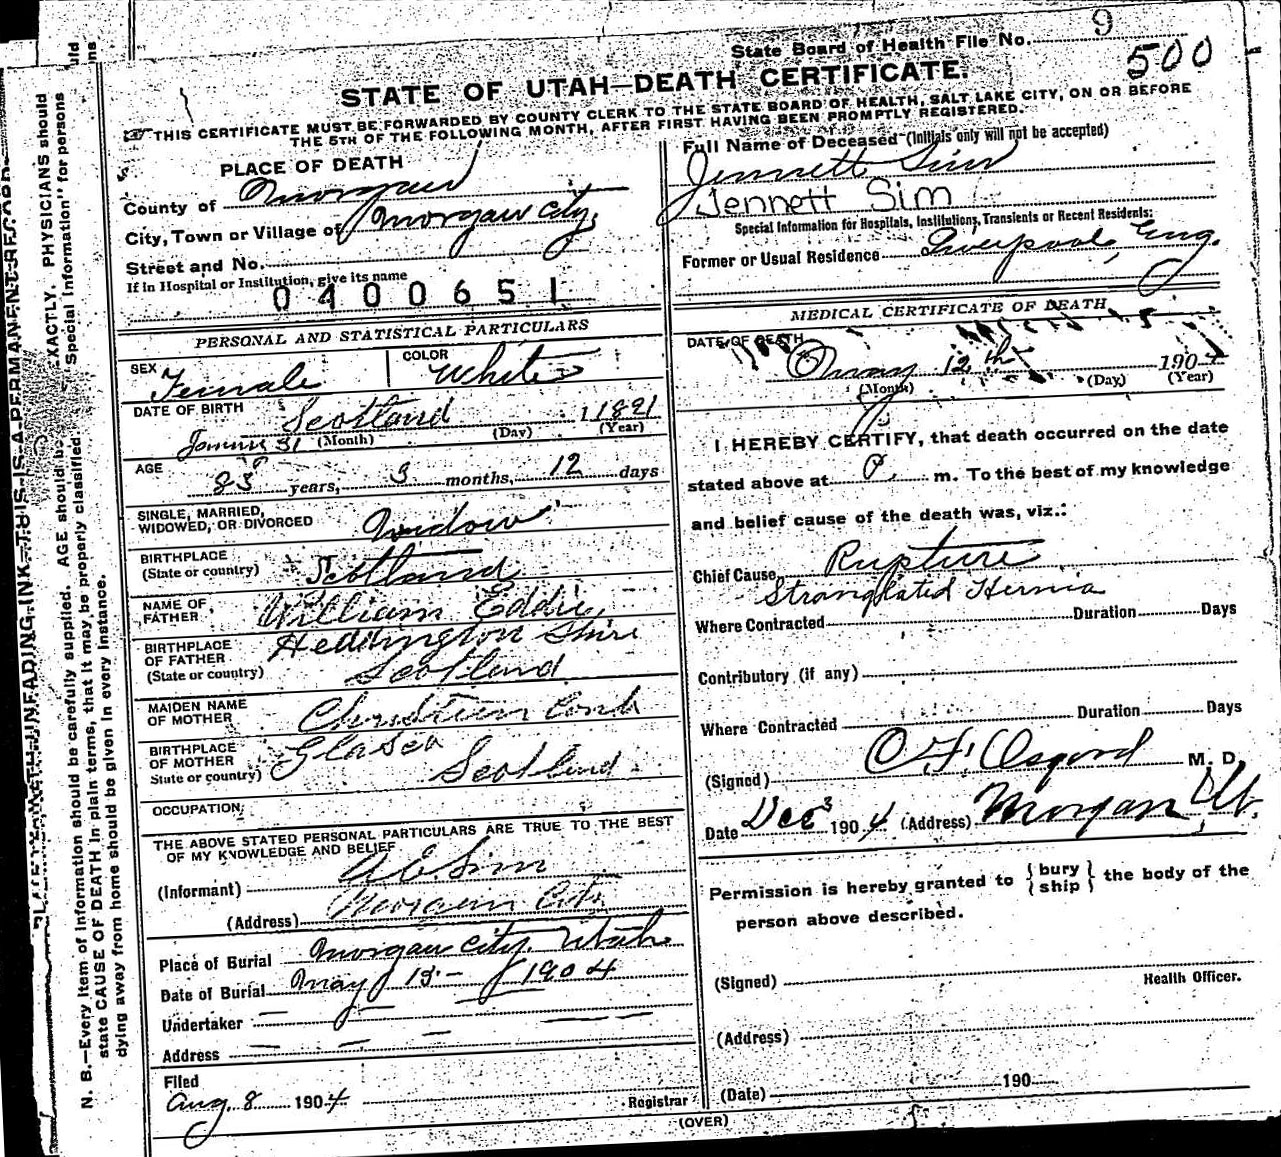 State Board of Health File No. 9
500
STATE OF UTAH—DEATH CERTIFICATE.
THIS CERTIFICATE MUST BE FORWARDED BY COUNTY CLERK TO THE STATE BOARD OF HEALTH, SALT LAKE CITY, ON OR BEFORE
THE 5TH OF THE FOLLOWING MONTH, AFTER FIRST HAVING BEEN PROMPTLY REGISTERED.
PLACE OF DEATH
County of Morgan
City, Town or Village of Morgan City
Street and No.
If in Hospital or Institution, give its name
0400651
Full Name of Deceased (Initials only will not be accepted)
Jennett Sim
Jennett Sim
Special Information for Hospitals, Institutions, Transients or Recent Residents:
Former or Usual Residence Liverpool, Eng.
PERSONAL AND STATISTICAL PARTICULARS
SEX Female
COLOR White
DATE OF BIRTH Scotland 1821
31 (Month) (Day) (Year)
AGE 83 years, 3 months, 12 days
SINGLE, MARRIED,
WIDOWED, OR DIVORCED Widow
BIRTHPLACE
(State or country) Scotland
NAME OF
FATHER William Eddie
BIRTHPLACE
OF FATHER Heddington Shire
(State or country) Scotland
MAIDEN NAME
OF MOTHER
BIRTHPLACE
OF MOTHER Glasco
State or country) Scotland
OCCUPATION:
THE ABOVE STATED PERSONAL PARTICULARS ARE TRUE TO THE BEST
OF MY KNOWLEDGE AND BELIEF
(Informant) Sim
(Address) Morgan City
Place of Burial Morgan City, Utah
Date of Burial May 15 - 1904
Undertaker
Address
Filed
Aug. 8 1904
Registrar
(OVER)
MEDICAL CERTIFICATE OF DEATH
DATE OF DEATH
May 12th 190
(Month) (Day) (Year)
I HEREBY CERTIFY, that death occurred on the date
stated above at P. m. To the best of my knowledge
and belief cause of the death was, viz.:
Chief Cause Rupture
Strangulated Hernia
Where Contracted Duration Days
Contributory (if any)
Where Contracted Duration Days
(Signed) Osgood M. D.
Date Dec 3 1904 (Address) Morgan, Ut.
Permission is hereby granted to {bury
ship} the body of the
person above described.
(Signed) Health Officer.
(Address)
(Date) 190
N. B.—Every item of information should be carefully supplied. AGE should be EXACTLY. PHYSICIANS should
state CAUSE OF DEATH in plain terms, that it may be properly classified. "Special Information" for persons
dying away from home should be given in every instance.